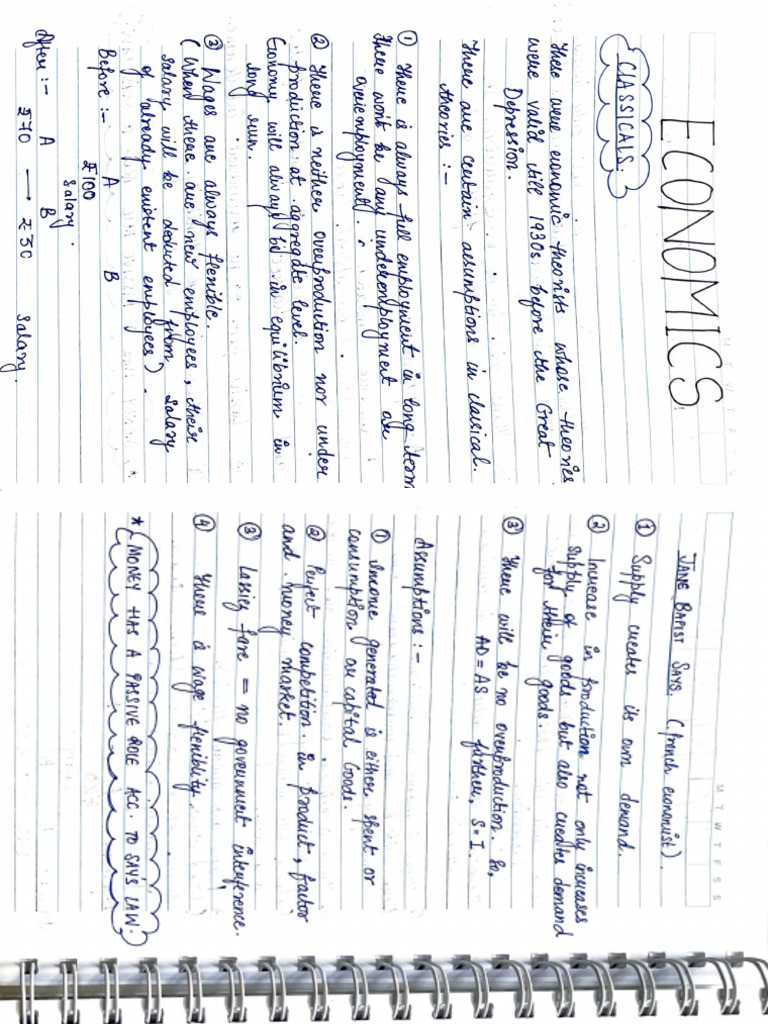 ECONOMICS
M T W T F S S
CLASSICALS.
These were economic theorists whose theories
were valid till 1930s before the Great
Depression.
There are certain assumptions in classical
theories :-
① There is always full employment in long term
There won't be any underemployment or
overemployment.
② There is neither overproduction nor under
production at aggregate level.
Economy will always be in equilibrium in
long run.
③ Wages are always flexible.
(When there are new employees, their
salary will be deducted from salary
of already existent employees).
Before :- A B
₹100
salary.
After :- A B
₹70 → ₹30 salary.
M T W T F S S
JANE BAPIST SAYS (french economist).
① Supply creates its own demand.
② Increase in production not only increases
supply of goods but also creates demand
for their goods.
③ There will be no overproduction. So,
AD = AS further, S = I.
Assumptions :-
① Income generated is either spent or
consumption or capital Goods.
② Perfect competition in product, factor
and money market.
③ Lassiez fare = no government interference.
④ There is wage flexiblity.
* MONEY HAS A PASSIVE ROLE ACC. TO SAY'S LAW.